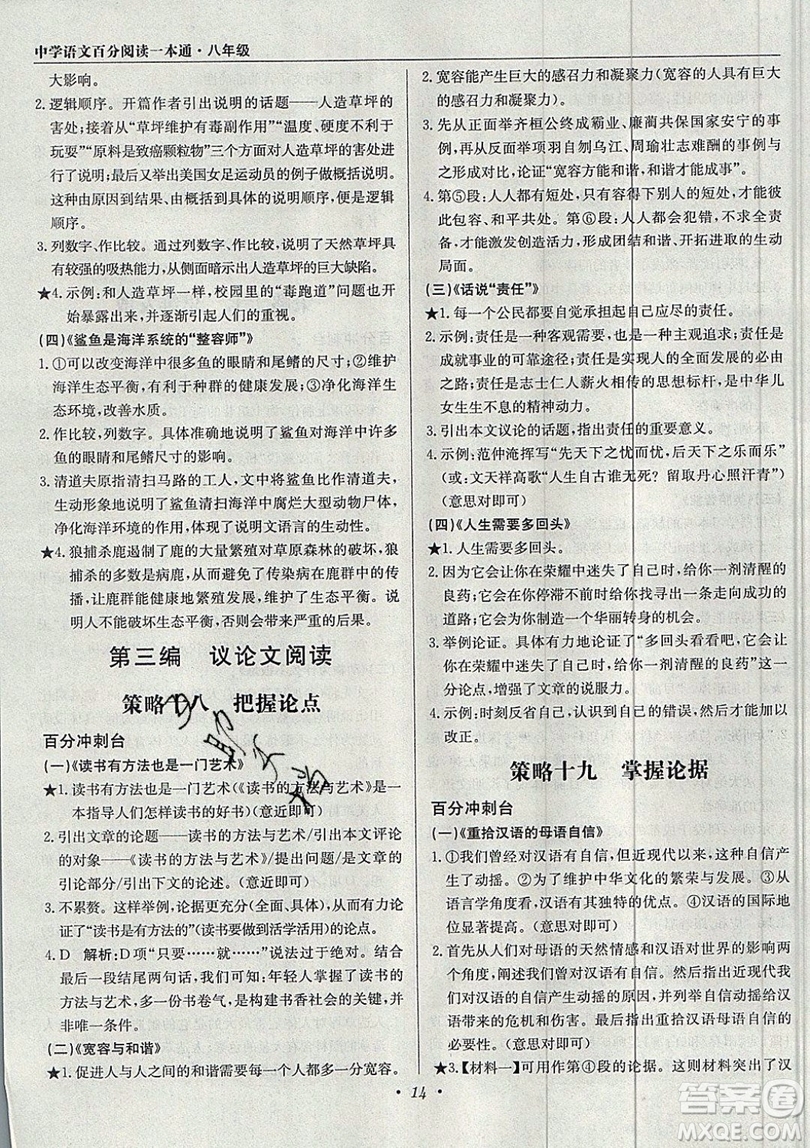 中学语文百分阅读一本通·八年级
大影响。
2. 逻辑顺序。开篇作者引出说明的话题——人造草坪的
害处；接着从“草坪维护有毒副作用”“温度、硬度不利于
玩耍”“原料是致癌颗粒物”三个方面说明了人造草坪的
害处；最后用生活在美国女足运动员的例子呼应前文。
这是由因到果、由结果到原因进行说明，因此是逻辑
顺序。
3. 列数字、作比较。通过列数字、作比较，说明了天然草坪
具有较强的吸热能力，从侧面暗示出人造草坪的巨大缺陷。
★4. 示例：和人造草坪一样，校园里的“毒跑道”问题也开
始暴露出来，并逐渐引起人们的重视。
(四)《鲨鱼是海洋系统的“整容师”》
1. ①可以改变海洋中很多鱼的眼睛和尾鳍的尺寸；②维护
海洋生态平衡，有助于种群的健康发展；③净化海洋生
态环境，改善水质。
2. 作比较，列数字。具体准确地说明了鲨鱼对海洋中许多
鱼的眼睛和尾鳍尺寸的影响。
3. 清道夫原指清扫马路的工人，文中将鲨鱼比作清道夫，
生动形象地说明了鲨鱼清扫海洋中腐烂大型动物尸体，
净化海洋环境的作用，体现了说明文语言的生动性。
★4. 狼捕杀鹿遏制了鹿的大量繁殖对草原森林的破坏，狼
捕杀的多是病鹿，避免了传染病在鹿群中的
传播，让鹿群健康地繁殖发展，维护了生态平衡。说
明人不能破坏生态平衡，否则会带来严重的后果。
第三编 议论文阅读
策略十八 把握论点
百分冲刺台
(一)《读书有方法也是一门艺术》
★1. 读书有方法也是一门艺术(《读书的方法与艺术》是一
本指导人们好好读书的好书)(意近即可)
2. 引出文章的论题——读书的方法与艺术/引出本文评论
的对象——《读书的方法与艺术》/提出论题，是文章的
引论部分/引出下文的论述。(意近即可)
3. 不累赘。这样写，论据更充分(全面、具体)，从而有力论证
了“读书是有方法的”(读书要做到活学活用)的论点。
4. D 解析：D项“只要……就……”说法过于绝对。结合
最后一段结尾两句可知：年轻人掌握了读书的方法与
艺术，多一些书卷气，是构建书香社会的关键，但并非
唯一条件。
(二)《宽容与和谐》
★1. 促进人与人之间的和谐需要我们每个人都多一份宽容。
2. 宽容能产生巨大的感召力和凝聚力(宽容的人具有巨大
的感召力和凝聚力)
3. 先从正面举齐桓公终成霸业、廉蔺共保国家安宁的事
例，再从反面举项羽自刎乌江、周瑜壮志难酬的事例与
之对比，论证了“宽容方能和谐，和谐才能成事”。
4. 第⑤段：人人都有短处，只有彼此相容才能成长处，彼
此包容、和平共处。第⑥段：人人都会犯错，不求全责
备，才能激发创造活力，促进团结和谐、开拓进取的生动
局面。
(三)《话说“责任”》
★1. 每一个公民都要自觉承担起自己应尽的责任。
2. 示例：责任是一种客观需要，也是一种主观追求；责任是
成就事业的可靠途径；责任是实现人的全面发展的必由
之路；责任是志士仁人薪火相传的思想标杆，是中华儿
女生生不息的精神动力。
3. 引出本文议论的话题，指出责任的重要意义。
4. 示例：范仲淹挥写“先天下之忧而忧，后天下之乐而乐”
(或：文天祥高歌“人生自古谁无死？留取丹心照汗青”)
(意思对即可)
(四)《人生需要多回头》
★1. 人生需要多回头。
2. 因为它会让你在荣耀中迷失了自己时，给你一剂清醒的
良药；它会在你停滞不前时，给你一把走向成功的
道路；它会为你制造一个华丽转身的机会。
3. 举例论证。具体有力地论证了“多回头看看吧，它会在
你在荣耀中迷失了自己时，给你一剂清醒的良药”这一论
点，增强了文章的说服力。
4. 示例：时刻反省自己，认识到自己的错误和缺点，并作出
改正。
策略十九 掌握论据
百分冲刺台
(一)《重拾汉语的母语自信》
1. ①我们曾经对汉语有自信，但近现代以来，这种自信产
生了动摇。②为了维护中华文化的繁荣与发展。
③汉语有其独特的优秀特质。④汉语的国际地
位显著提高了。(意思对即可)
2. 首先从人们对母语的天然情感和汉语对世界的影响两
个角度，阐述我们曾对汉语有自信。然后指出近现代我
们对汉语自信产生动摇的原因，并列举自信产生动摇所
带来的危机和伤害，引出我们重拾对汉语母语自信的必
要性。(意思对即可)
★3. 【材料一】可用来作第④段的论据。这则材料突出了汉
14
答案圈
MXQE.COM